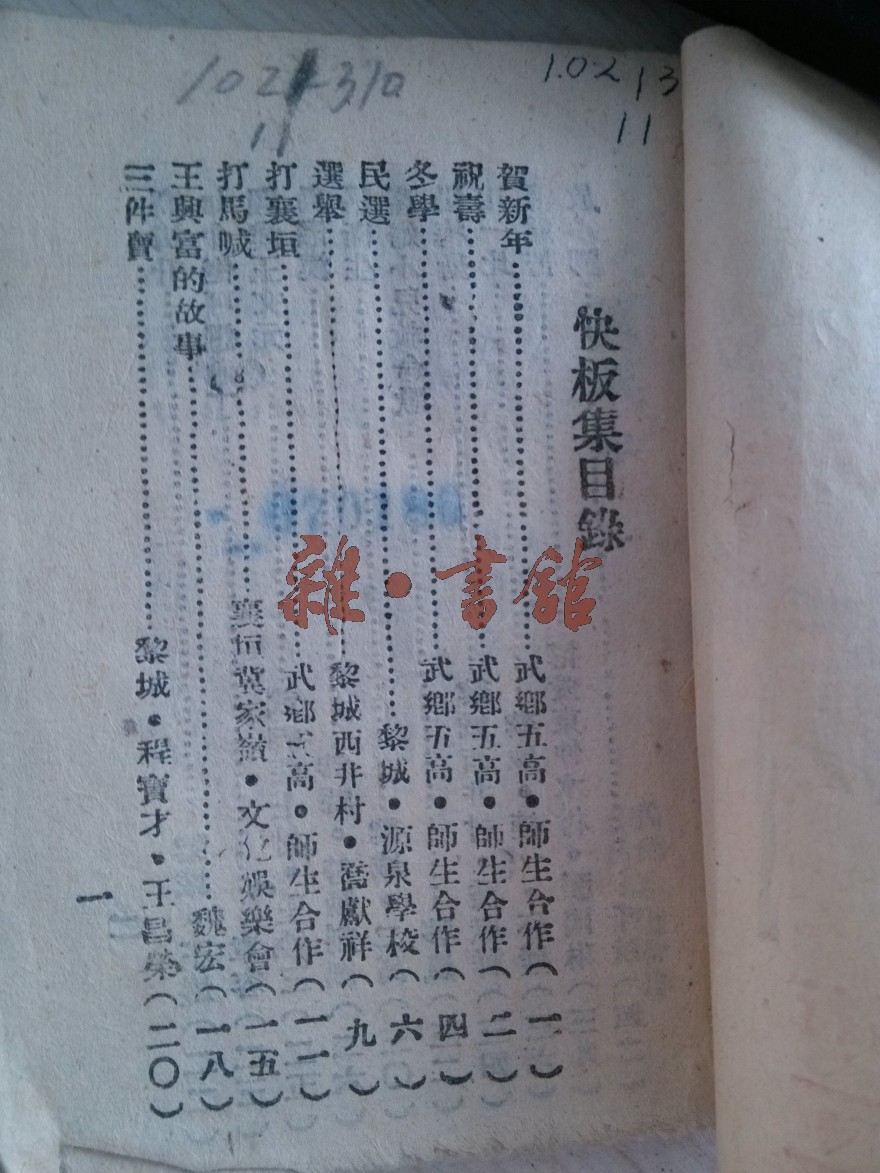 1021310
11
1.0213
11
快板集目錄
賀新年……武鄉五高・師生合作(一)
祝壽……武鄉五高・師生合作(二)
冬學……武鄉五高・師生合作(四)
民選……黎城・源泉學校(六)
選舉……黎城西井村・喬獻祥(九)
打襄垣……武鄉五高・師生合作(一一)
打馬喊……襄垣冀家嶺・文化娛樂會(一五)
王興富的故事……魏宏(一八)
三件寶……黎城・程寶才・王昌榮(二〇)
一
雜・書館